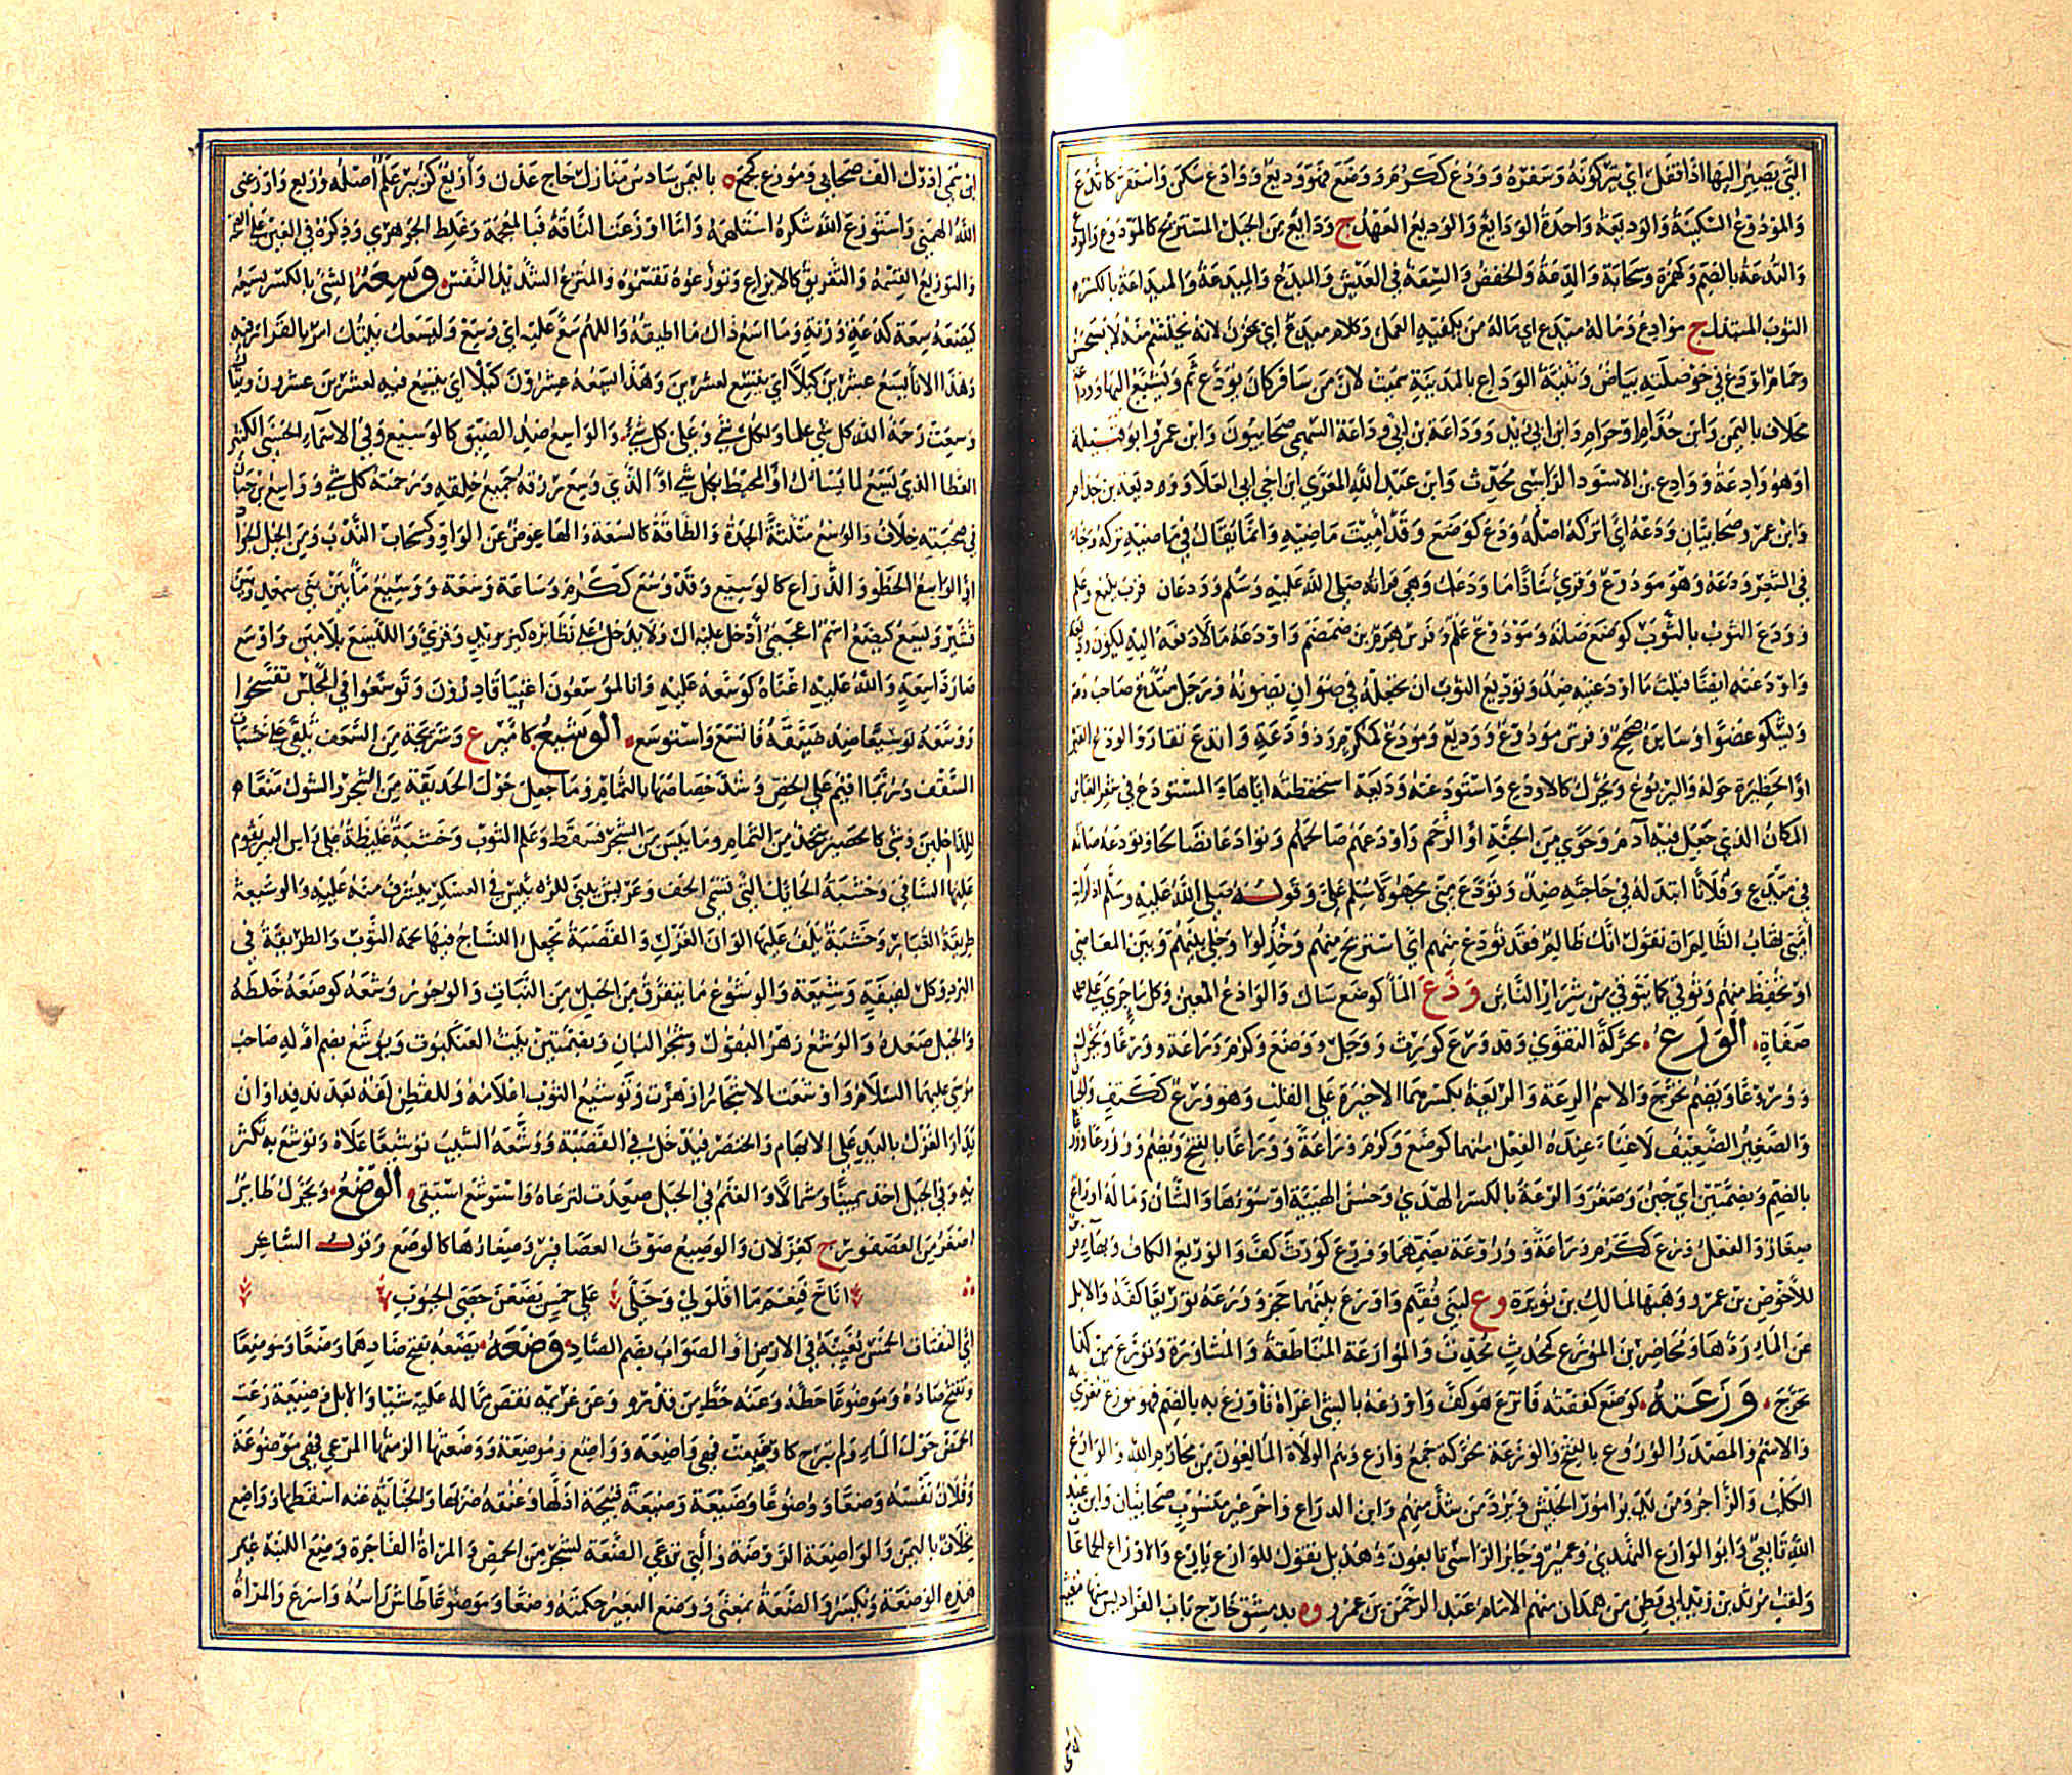 التي يصير اليها اذا قفل اي يتركونه وسفره وودع ككرم ووضع فهو وديع ووادع سكن واستقر كاتدع
والمودوع السكينة والوديعة واحدة الودايع والوديع العهد ج ودايع من الخيل المستريح كالمودوع
والتدعة بالضم وكهمزة وسحابة والدعة والخفض والسعة في العيش والميدع والميدعة والميداعة بالكسر
الثوب المبتذل ج موادع وماله ميدع اي ماله من يكفيه العمل وكلام ميدع اي يحزن لانه يحتشم منه لا يستحسن
وحمام اودع في حوصلته بياض وثنية الوداع بالمدينة سميت لان من سافر كان يودع ثم ويشيع اليها
مخلاف باليمن وابن جذام وحرام وابن ابي زيد ووداعة بن ابي وداعة السهمي صحابيون وابن عمرو ابو قبيلة
او هو وادعة ووادع بن الاسود الراسبي محدث وابن عبد الله المعري ابن اخي ابي العلا ووديعة بن جذام
وابن عمرو صحابيان ودعه اي اتركه اصله ودع كوضع وقد اميت ماضيه وانما يقال في ماضيه تركه وجاء
في الشعر ودعه وهو مودوع وقري شاذا ما ودعك وهي قراته صلى الله عليه وسلم وودعان قرب ينبع وعلم
وودع الثوب بالثوب كوضع صانه ومودوع علم وفرس هرم بن ضمضم واودعه مالا دفعه اليه ليكون
واودعته ايضا قبلت ما اودعنيه ضد وتوديع الثوب ان تجعله في صوان يصونه ورجل متدع صاحب دعة
ويشكو عضوا وسايره صحيح وفرس مودوع ووديع ومودع كمكرم وذو ودعة واتدع تقار والودع القبر
او الحظيرة حوله واليربوع ويحرك كالاودع واستودعته وديعة استحفظته اياها والمستودع في شعر العباس
المكان الذي جعل فيه آدم وحوي من الجنة او الرحم واودعهم صالحهم وتوادعا تصالحا وتودعه صانه
في ميدع وفلانا ابتذله في حاجته ضد وتودع مني مجهولا سلم علي وقوله صلى الله عليه وسلم اذا رات
امتي تهاب الظالم ان تقول انك ظالم فقد تودع منهم اي استريح منهم وخذلوا وخلي بينهم وبين المعاصي
او تحفظ منهم وتوقي كما يتوقي من شرار الناس وذع الماء كوضع سال والواذع المعين وكل ما جري علي
صفاة الورع محركة التقوي وقد ورع كورث ووجل ووضع وكرم وراعة وورعا ويحرك
ووروعا ويضم تحرج والاسم الرعة والريعة بكسرهما الاخيرة على القلب وهو ورع ككتف
والصغير الضعيف لا غناء عنده الفعل منهما كوضع وكرم وراعة ووراعا بالفتح ويضم ووروعا
بالضم وبضمتين اي جبن وصغر والرعة بالكسر الهدي وحسن الهيئة او سوءها والشان وماله اوراع
صغار والفعل ورع ككرم وراعة ووروعة بضمهما وورع كورث كف والوريع الكاف وبهاء فرس
للاحوص بن عمرو ووهبها لمالك بن نويرة وع لبني فقيم واورع بينهما حجز وورعه توريعا كفه والابل
عن الماء ردها ومحاضر بن المورع كمحدث محدث والموارعة المناطقة والمشاورة وتورع من كذا
تحرج وزعته كوضع كففته فاتزع هو كف واوزعه بالشي اغراه فاوزع به بالضم فهو موزع مغري
والاسم والمصدر الوزوع بالفتح والوزعة محركة جمع وازع وهم الولاة المانعون من محارم الله والوازع
الكلب والزاجر ومن يدبر امور الجيش ويرد من شذ منهم وابن الدراع واخر غير منسوب صحابيان وابن عبد
الله تابعي وابو الوازع النهدي وعمير وجابر الراسبي تابعون وهذيل تقول للوازع يازع والاوزاع الجماعات
ولقب مرثد بن زيد ابي بطن من همدان منهم الامام عبد الرحمن بن عمرو وه بدمشق خارج باب الفراديس منها
ابن نمي ادرك الف صحابي وموزع كمجمع ه باليمن سادس منازل حاج عدن وازيع كزبير علم اصله وزيع واوزعني
الله الهمني واستوزع الله شكره استلهمه واما اوزعت الناقة فبالمعجمة وغلط الجوهري وذكره في الغين على الصحة
والتوزيع القسمة والتفريق كالايزاع وتوزعوه تقسموه والمتزع الشديد النفس وسعه الشي بالكسر يسعه
كيضعه سعة كدعة وزنة وما اسع ذاك ما اطيقه واللهم سع عليه اي وسع وليسعك بيتك امر بالقرار فيه
وهذا الاناء يسع عشرين كيلا اي يتسع لعشرين وهذا يسعه عشرون كيلا اي يتسع فيه لعشرين عشرون
وسعت رحمة الله كل شي علما ولكل شي وعلى كل شي والواسع ضد الضيق كالوسيع وفي الاسماء الحسنى الكثير
العطا الذي يسع لما يسال او المحيط بكل شي او الذي وسع رزقه جميع خلقه ورحمته كل شي وواسع بن حبان
في صحبته خلاف والوسع مثلثة الجدة والطاقة كالسعة والها عوض عن الواو وكسحاب الندب ومن الخيل الجواد
او الواسع الخطو والذراع كالوسيع وقد وسع ككرم وساعة وسعة ووسيع ما بين بني سعد وبني
قشير وليسع كيضع اسم اعجمي ادخل عليه ال ولا يدخل على نظائره كيزيد وقري والليسع بلامين واوسع
صار ذا سعة والله عليه اغناه كوسعه عليه وانا لموسعون اغنيا قادرون وتوسعوا في المجلس تفسحوا
ووسعه توسيعا ضد ضيقه فاتسع واستوسع الوشيع كامير ع وشريجة من السعف تلقي على خشبات
السقف وربما اقيم علي الخص وسد خصاصها بالثمام وما جعل حول الحديقة من الشجر والشوك منعا
للداخلين وشي كالحصير يتخذ من الثمام وما يبس من الشجر فسقط وعلم الثوب وخشبة غليظة على راس البير يقوم
عليها الساقي وخشبة الحائك التي تسمى الحف وعريش يبني للرئيس في العسكر يشرف منه عليه والوشيعة
طريقة الغبار وخشبة يلف عليها الوان الغزل والقصبة تجعل النساج فيها لحمة الثوب والطريقة في
البرد وكل لفيفة وشيعة والوشوع ما يتفرق من الجبل من النبات والوجور وشعه كوضعه خلطه
والجبل صعده والوشع زهر البقول وشجر البان وبضمتين بيت العنكبوت ويوشع بضم اوله صاحب
موسى عليهما السلام واوشعت الاشجار ازهرت وتوشيع الثوب اعلامه وللقطن لفه بعد ندفه او ان
يدار الغزل باليد على الابهام والخنصر فيدخل في القصبة ووشعه الشيب توشيعا علاه وتوشع به تكثر
به وفي الجبل اخذ يمينا وشمالا والغنم في الجبل صعدت لترعاه واستوشع استقي الوصع ويحرك طاير
اصغر من العصفور ج كغزلان والوصيع صوت العصافير وصغارها كالوصع وقول الشاعر
اناخ فنعم ما اقلولي وخلي على خمس يصعن حصى الجبوب
اي الثفنات الخمس تغيبه في الارض او الصواب بضم الصاد وضعه يضعه بفتح ضادهما وضعا وموضعا
ويفتح ضاده وموضوعا حطه وعنه حط من قدره وعن غريمه نقص مما له عليه شيا والابل وضيعة رعت
الحمض حول الماء ولم تبرح كاوضعت فهي واضعة وواضع وموضعة ووضعتها الزمتها المرعي فهي موضوعة
وفلان نفسه وضعا ووضوعا وضيعة وضعة قبيحة اذلها وعنقه ضربها والجناية عنه اسقطها وواضع
مخلاف باليمن والواضعة الروضة والتي ترعي الضعة لشجر من الحمض والمراة الفاجرة وضع اللبنة غير
هذه الوضعة وتكسر والضعة بمعنى ووضع البعير حكمته وضعا وموضوعا طاش راسه واسرع والمراة